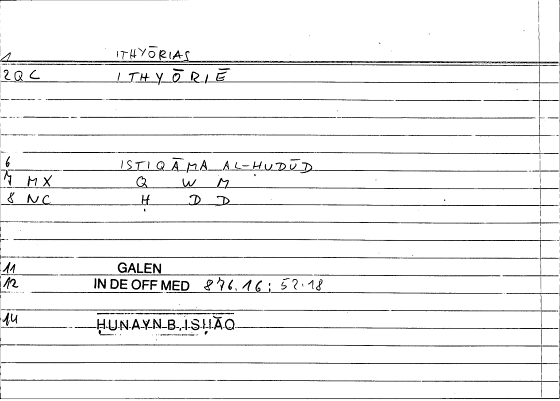 1 ITHYŌRIAS
2QC ITHYŌRIĒ
6 ISTIQĀMA AL-ḤUDŪD
7 MX Q W M
8 NC Ḥ D D
11 GALEN
12 IN DE OFF MED 876.16; 52.18
14 ḤUNAYN B. ISḤĀQ